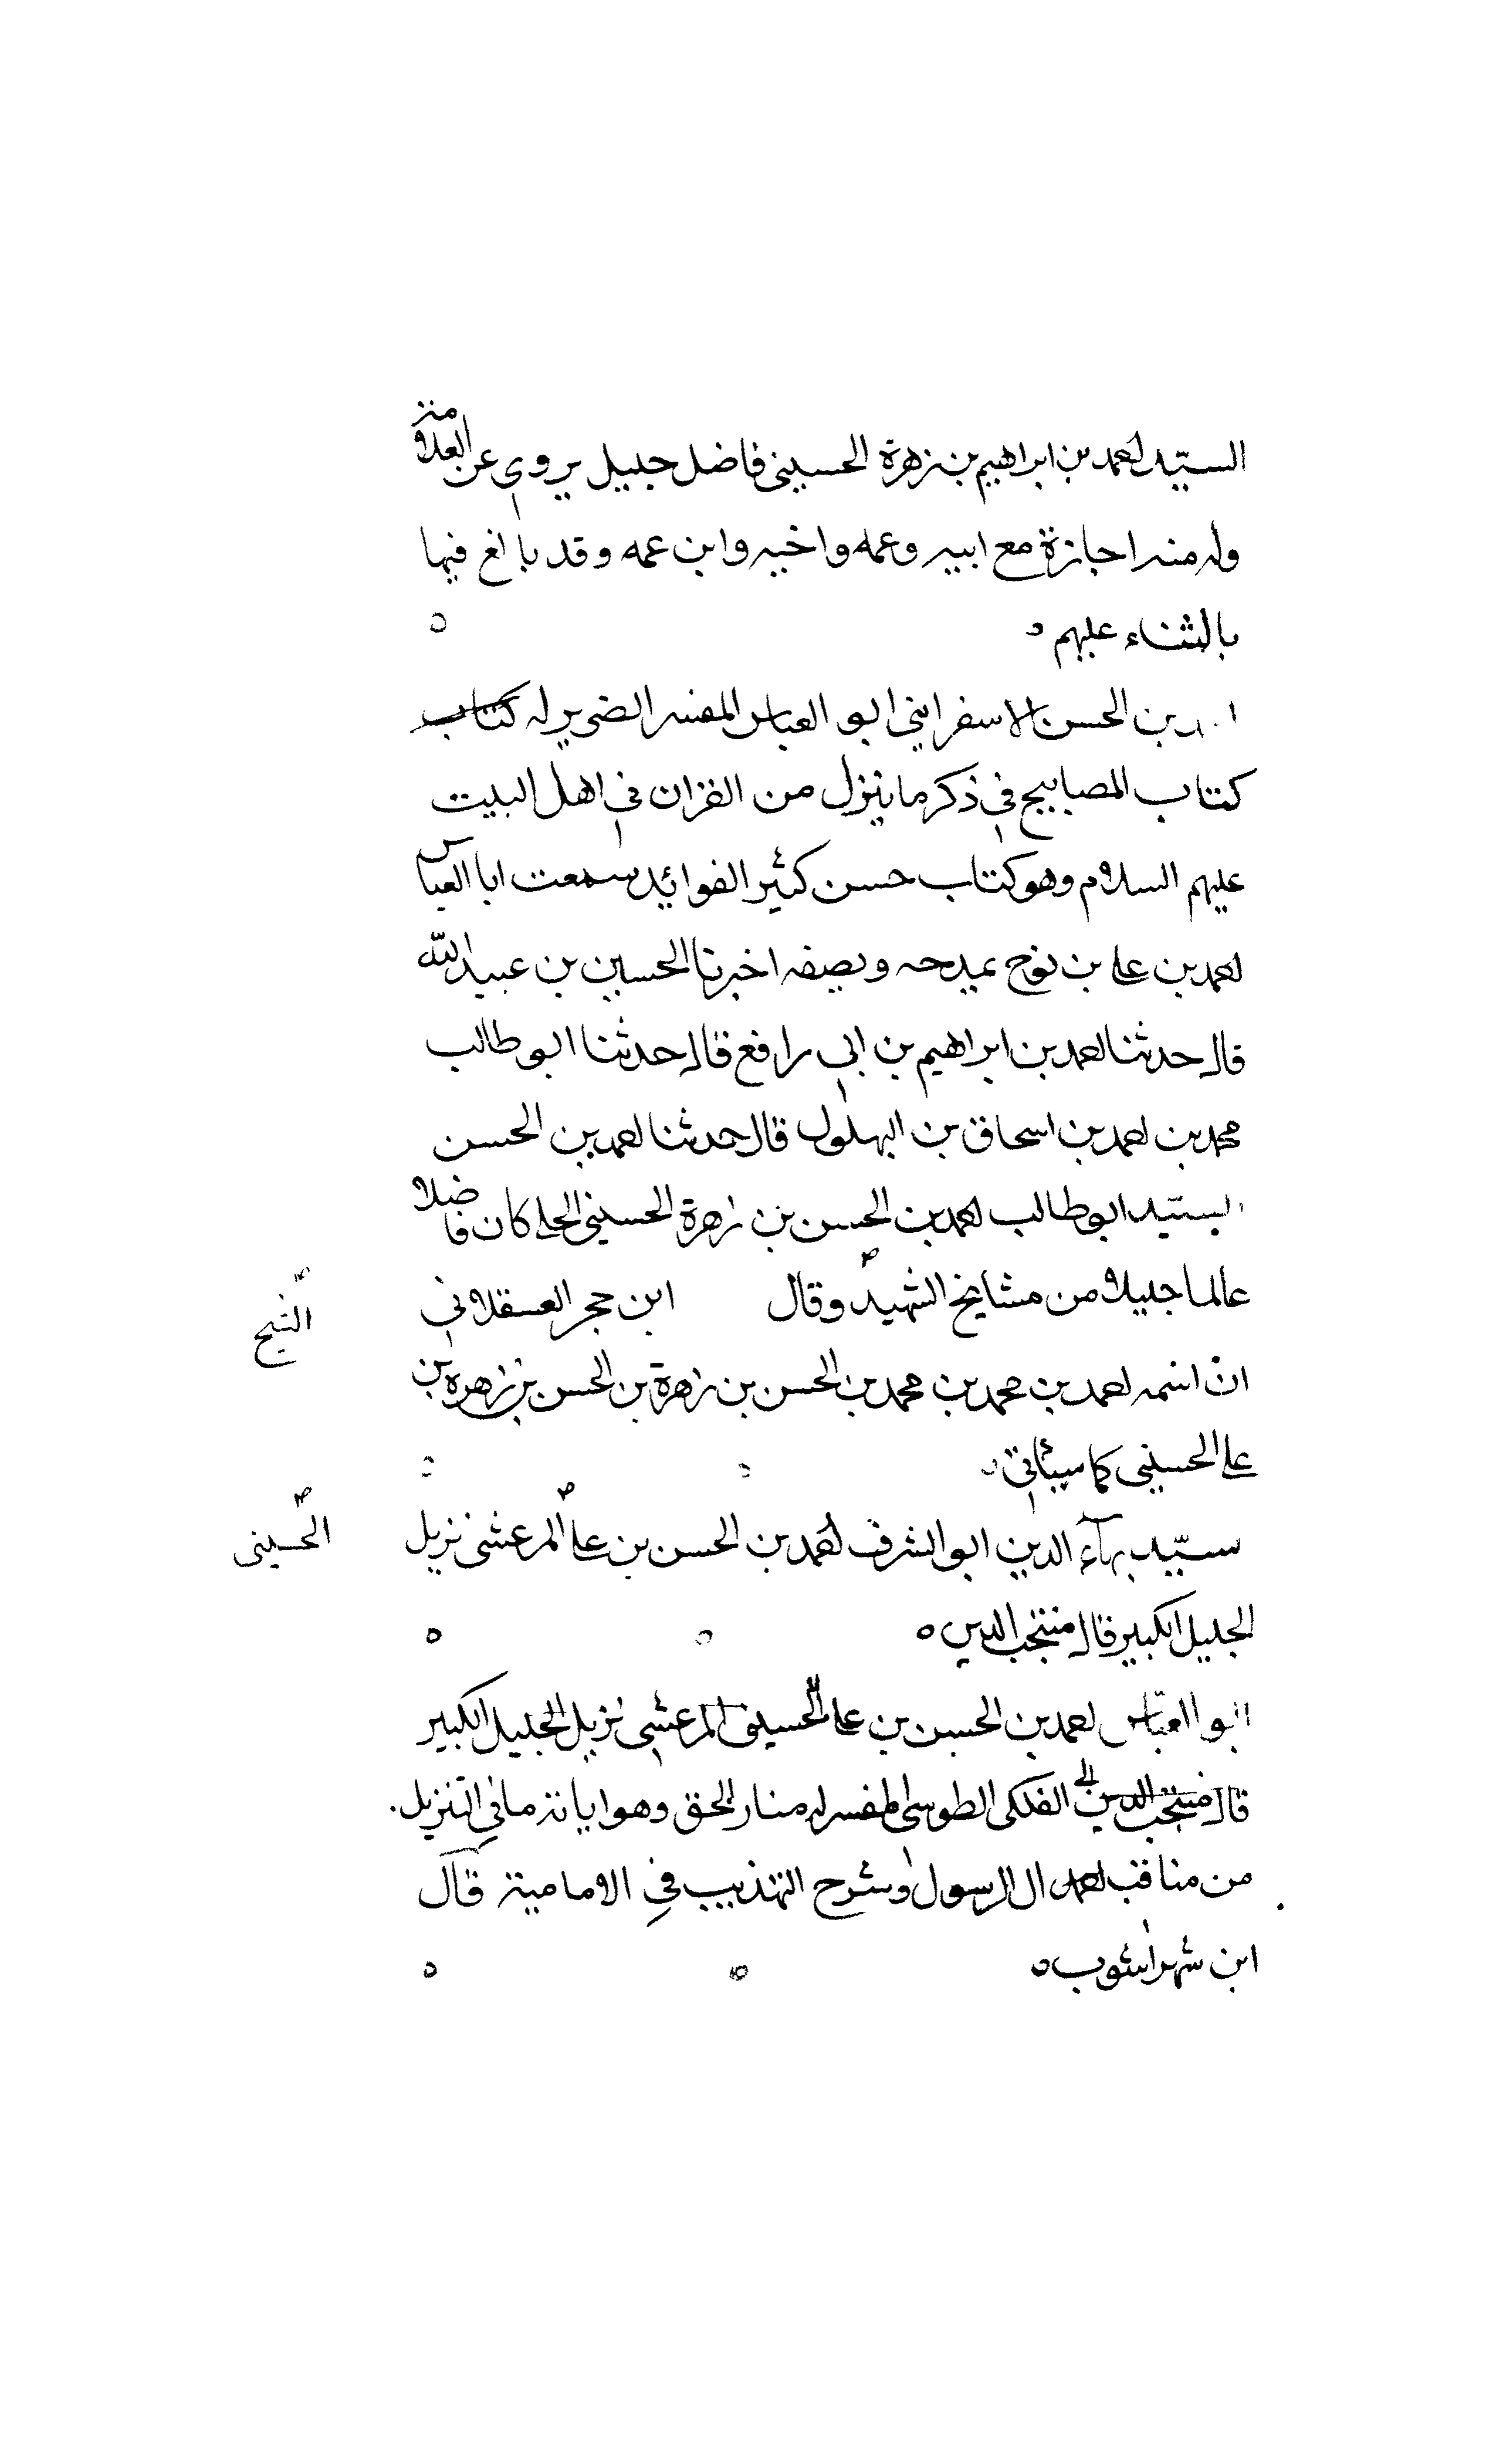 السيّد احمد بن ابراهيم بن زهرة الحسيني فاضل جليل يروي عن العلامة
وله منه اجازة مع ابيه وعمه واخيه وابن عمه وقد بالغ فيها
بالثناء عليهم
احمد بن الحسن الاسفرايني ابو العباس المفسر الضرير له كتاب
كتاب المصابيح في ذكر ما نزل من القران في اهل البيت
عليهم السلام وهو كتاب حسن كثير الفوائد سمعت ابا العباس
احمد بن علي بن نوح يمدحه ويصفه اخبرنا الحسين بن عبيد الله
قال حدثنا احمد بن ابراهيم بن ابي رافع قال حدثنا ابو طالب
محمد بن احمد بن اسحاق بن البهلول قال حدثنا احمد بن الحسن
السيّد ابو طالب احمد بن الحسن بن زهرة الحسيني الحلبي كان فاضلا
عالما جليلا من مشايخ الشهيد وقال ابن حجر العسقلاني
الشيخ
ان اسمه احمد بن محمد بن محمد بن الحسن بن زهرة بن الحسن بن زهرة بن
علي الحسيني كما سياتي
سيّد بهآء الدين ابو الشرف احمد بن الحسن بن علي المرعشي نزيل
الحسيني
الجليل الكبير قال منتجب الدين
ابو العباس احمد بن الحسن بن علي الحسيني المرعشي نزيل الجليل الكبير
قال منتجب الدين الفلكي الطوسي المفسر له منار الحق وهو ابانة ما في التنزيل
من مناقب ال الرسول وشرح التهذيب في الامامية قال
ابن شهراشوب